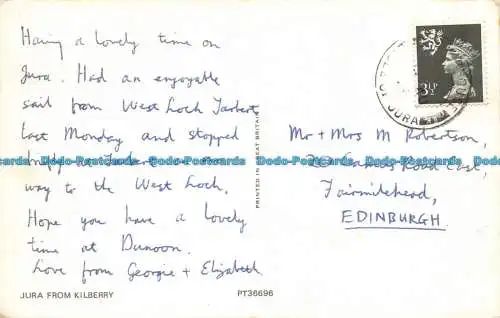 Having a lovely time on
Jura. Had an enjoyable
sail from West Loch Tarbert
last Monday and stopped
way to the West Loch.
Hope you have a lovely
time at Dunoon.
Love from Georgie + Elizabeth
JURA FROM KILBERRY
PT36696
PRINTED IN GREAT BRITAIN
3½P
JURA
Mr + Mrs M Robertson,
Road East,
Fairmilehead,
EDINBURGH.
Dodo-Postcards Dodo-Postcards Dodo-Postcards Dodo-Postcards Dodo-Postcards